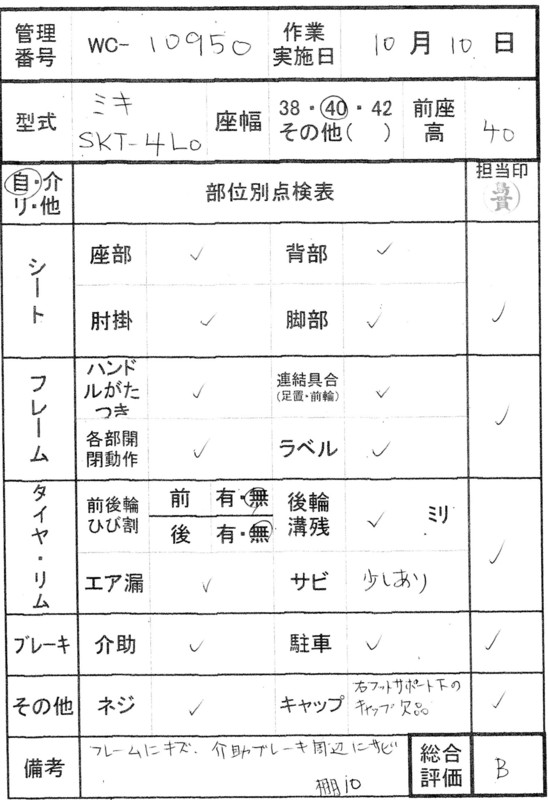 管理番号 WC- 10950 作業実施日 10月10日
型式 ミキ SKT-4L0 座幅 38・40・42 その他( ) 前座高 40
自・介 リ・他 部位別点検表 担当印
シート 座部 ✓ 背部 ✓
肘掛 ✓ 脚部 ✓ ✓
フレーム ハンドルがたつき ✓ 連結具合(足置・前輪) ✓ ✓
各部開閉動作 ✓ ラベル ✓
タイヤ・リム 前後輪ひび割 前 有・無 後輪溝残 ✓ ミリ ✓
後 有・無
エア漏 ✓ サビ 少しあり
ブレーキ 介助 ✓ 駐車 ✓ ✓
その他 ネジ ✓ キャップ 右フットサポート下のキャップ欠品 ✓
備考 フレームにキズ、介助ブレーキ周辺にサビ 総合評価 B
棚10